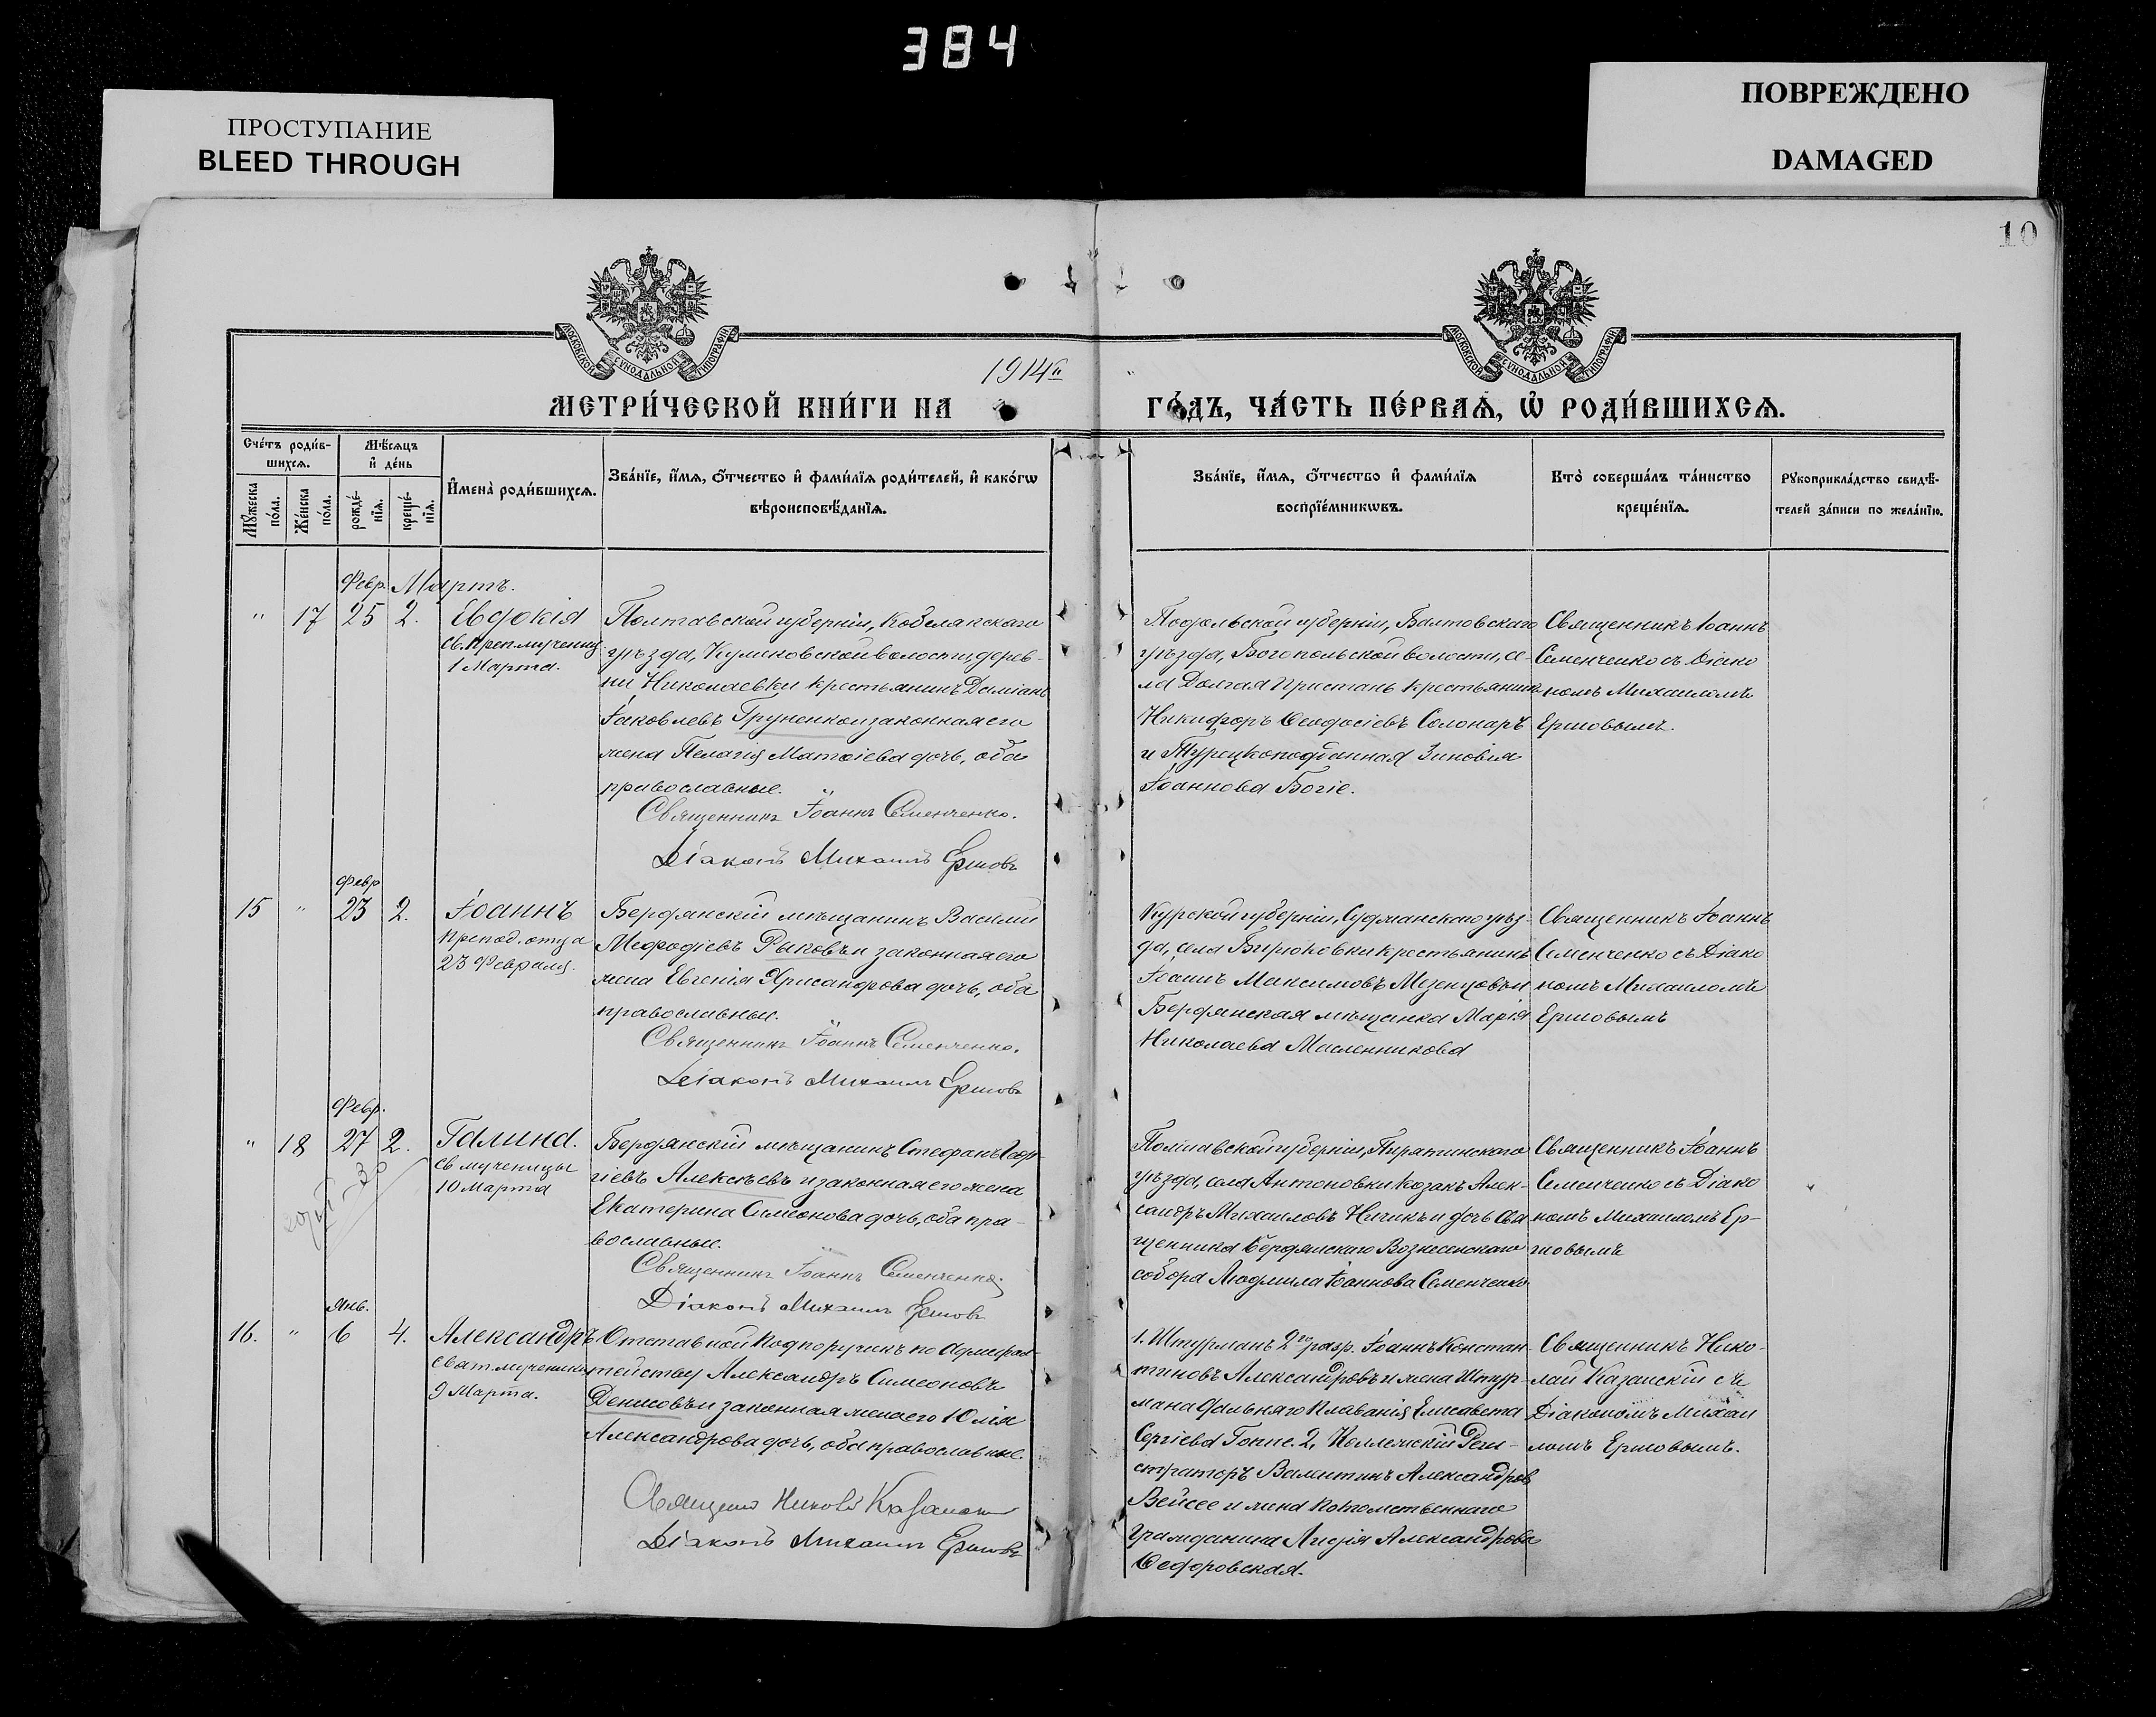 384
ПРОСТУПАНИЕ
BLEED THROUGH
ПОВРЕЖДЕНО
DAMAGED
10
МОСКОВСКОЙ СѴНОДАЛЬНОЙ ТИПОГРАФІИ
МОСКОВСКОЙ СѴНОДАЛЬНОЙ ТИПОГРАФІИ
1914й
МЕТРИ́ЧЕСКОЙ КНИ́ГИ НА
ГО́ДЪ, ЧА́СТЬ ПЕ́РВАѦ, Ѡ҆ РОДИ́ВШИХСѦ.
Сче́тъ роди́в-
шихсѧ.
Мѣ́сѧцъ
и҆ де́нь
Мꙋ́жеска
по́ла.
Же́нска
по́ла.
рожде́-
нїѧ.
креще́-
нїѧ.
И҆мена̀ роди́вшихсѧ.
Зва́нїе, и҆́мѧ, ѻ҆́тчество и҆ фами́лїѧ роди́телей, и҆ како́гѡ
вѣроисповѣ́данїѧ.
Зва́нїе, и҆́мѧ, ѻ҆́тчество и҆ фами́лїѧ
воспрїе́мникѡвъ.
Кто̀ соверша́лъ та́инство
креще́нїѧ.
Рꙋкоприкла́дство свидѣ́-
телей за́писи по жела́нїю.
Февр. Мартъ.
" 17 25 2.
Евдокія
св. преп. мучениц.
1 Марта.
Полтавской губерніи, Кобелякскаго
уѣзда, Куликовской волости, дерев-
ни Николаевки крестьянинъ Даміанъ
Іаковлевъ Груненко и законная его
жена Пелагія Матѳіева дочь, оба
православные.
Священникъ Іоаннъ Семенченко.
Діаконъ Михаилъ Ершовъ
Подольской губерніи, Балтовскаго
уѣзда, Богопольской волости, се-
ла Долгая Пристань крестьянинъ
Никифоръ Ѳеодосіевъ Солонаръ
и Турецкоподданная Зиновія
Іоаннова Богіе.
Священникъ Іоаннъ
Семенченко съ Діако
номъ Михаиломъ
Ершовымъ.
Февр
15 " 23 2.
Іоаннъ
Препод. отца
23 Февраля.
Бердянскій мѣщанинъ Василій
Меѳодіевъ Рыковъ и законная его
жена Евгенія Хрисанфова дочь, оба
православные.
Священникъ Іоаннъ Семенченко.
Діаконъ Михаилъ Ершовъ
Курской губерніи, Суджанскаго уѣз-
да, села Бирюковки крестьянинъ
Іоаннъ Максимовъ Мезенцовъ и
Бердянская мѣщанка Марія
Николаева Масленникова
Священникъ Іоаннъ
Семенченко съ Діако
номъ Михаиломъ
Ершовымъ
Февр.
" 18 27 2.
Галина.
св мученицы
10 Марта
Бердянскій мѣщанинъ Стефанъ Геор-
гіевъ Алексѣевъ и законная его жена
Екатерина Симеонова дочь, оба пра-
вославные.
Священникъ Іоаннъ Семенченко.
Діаконъ Михаилъ Ершовъ
Полтавской губерніи, Пирятинскаго
уѣзда, села Антоновки козакъ Алек-
сандръ Михаиловъ Ничикъ и дочь свя
щенника Бердянскаго Вознесенскаго
собора Людмила Іоаннова Семенченко
Священникъ Іоаннъ
Семенченко съ Діако
номъ Михаиломъ Ер-
шовымъ
Янв.
16. " 6 4.
Александръ
свят. мученика
9 Марта.
Отставной Подпоручикъ по Адмирал-
тейству Александръ Симеоновъ
Денисовъ и законная жена его Юлія
Александрова дочь, оба православные.
Священ Николай Казанскій
Діаконъ Михаилъ Ершовъ
1. Штурманъ 2го разр. Іоаннъ Констан-
тиновъ Александровъ и жена Штур-
мана дальняго плаванія Елисавета
Сергіева Гоппе. 2, Коллежскій Реги-
страторъ Валентинъ Александров
Вейсее и жена потомственнаго
гражданина Лидія Александрова
Ѳедоровская.
Священникъ Нико-
лай Казанскій съ
Діакономъ Михаи
ломъ Ершовымъ.